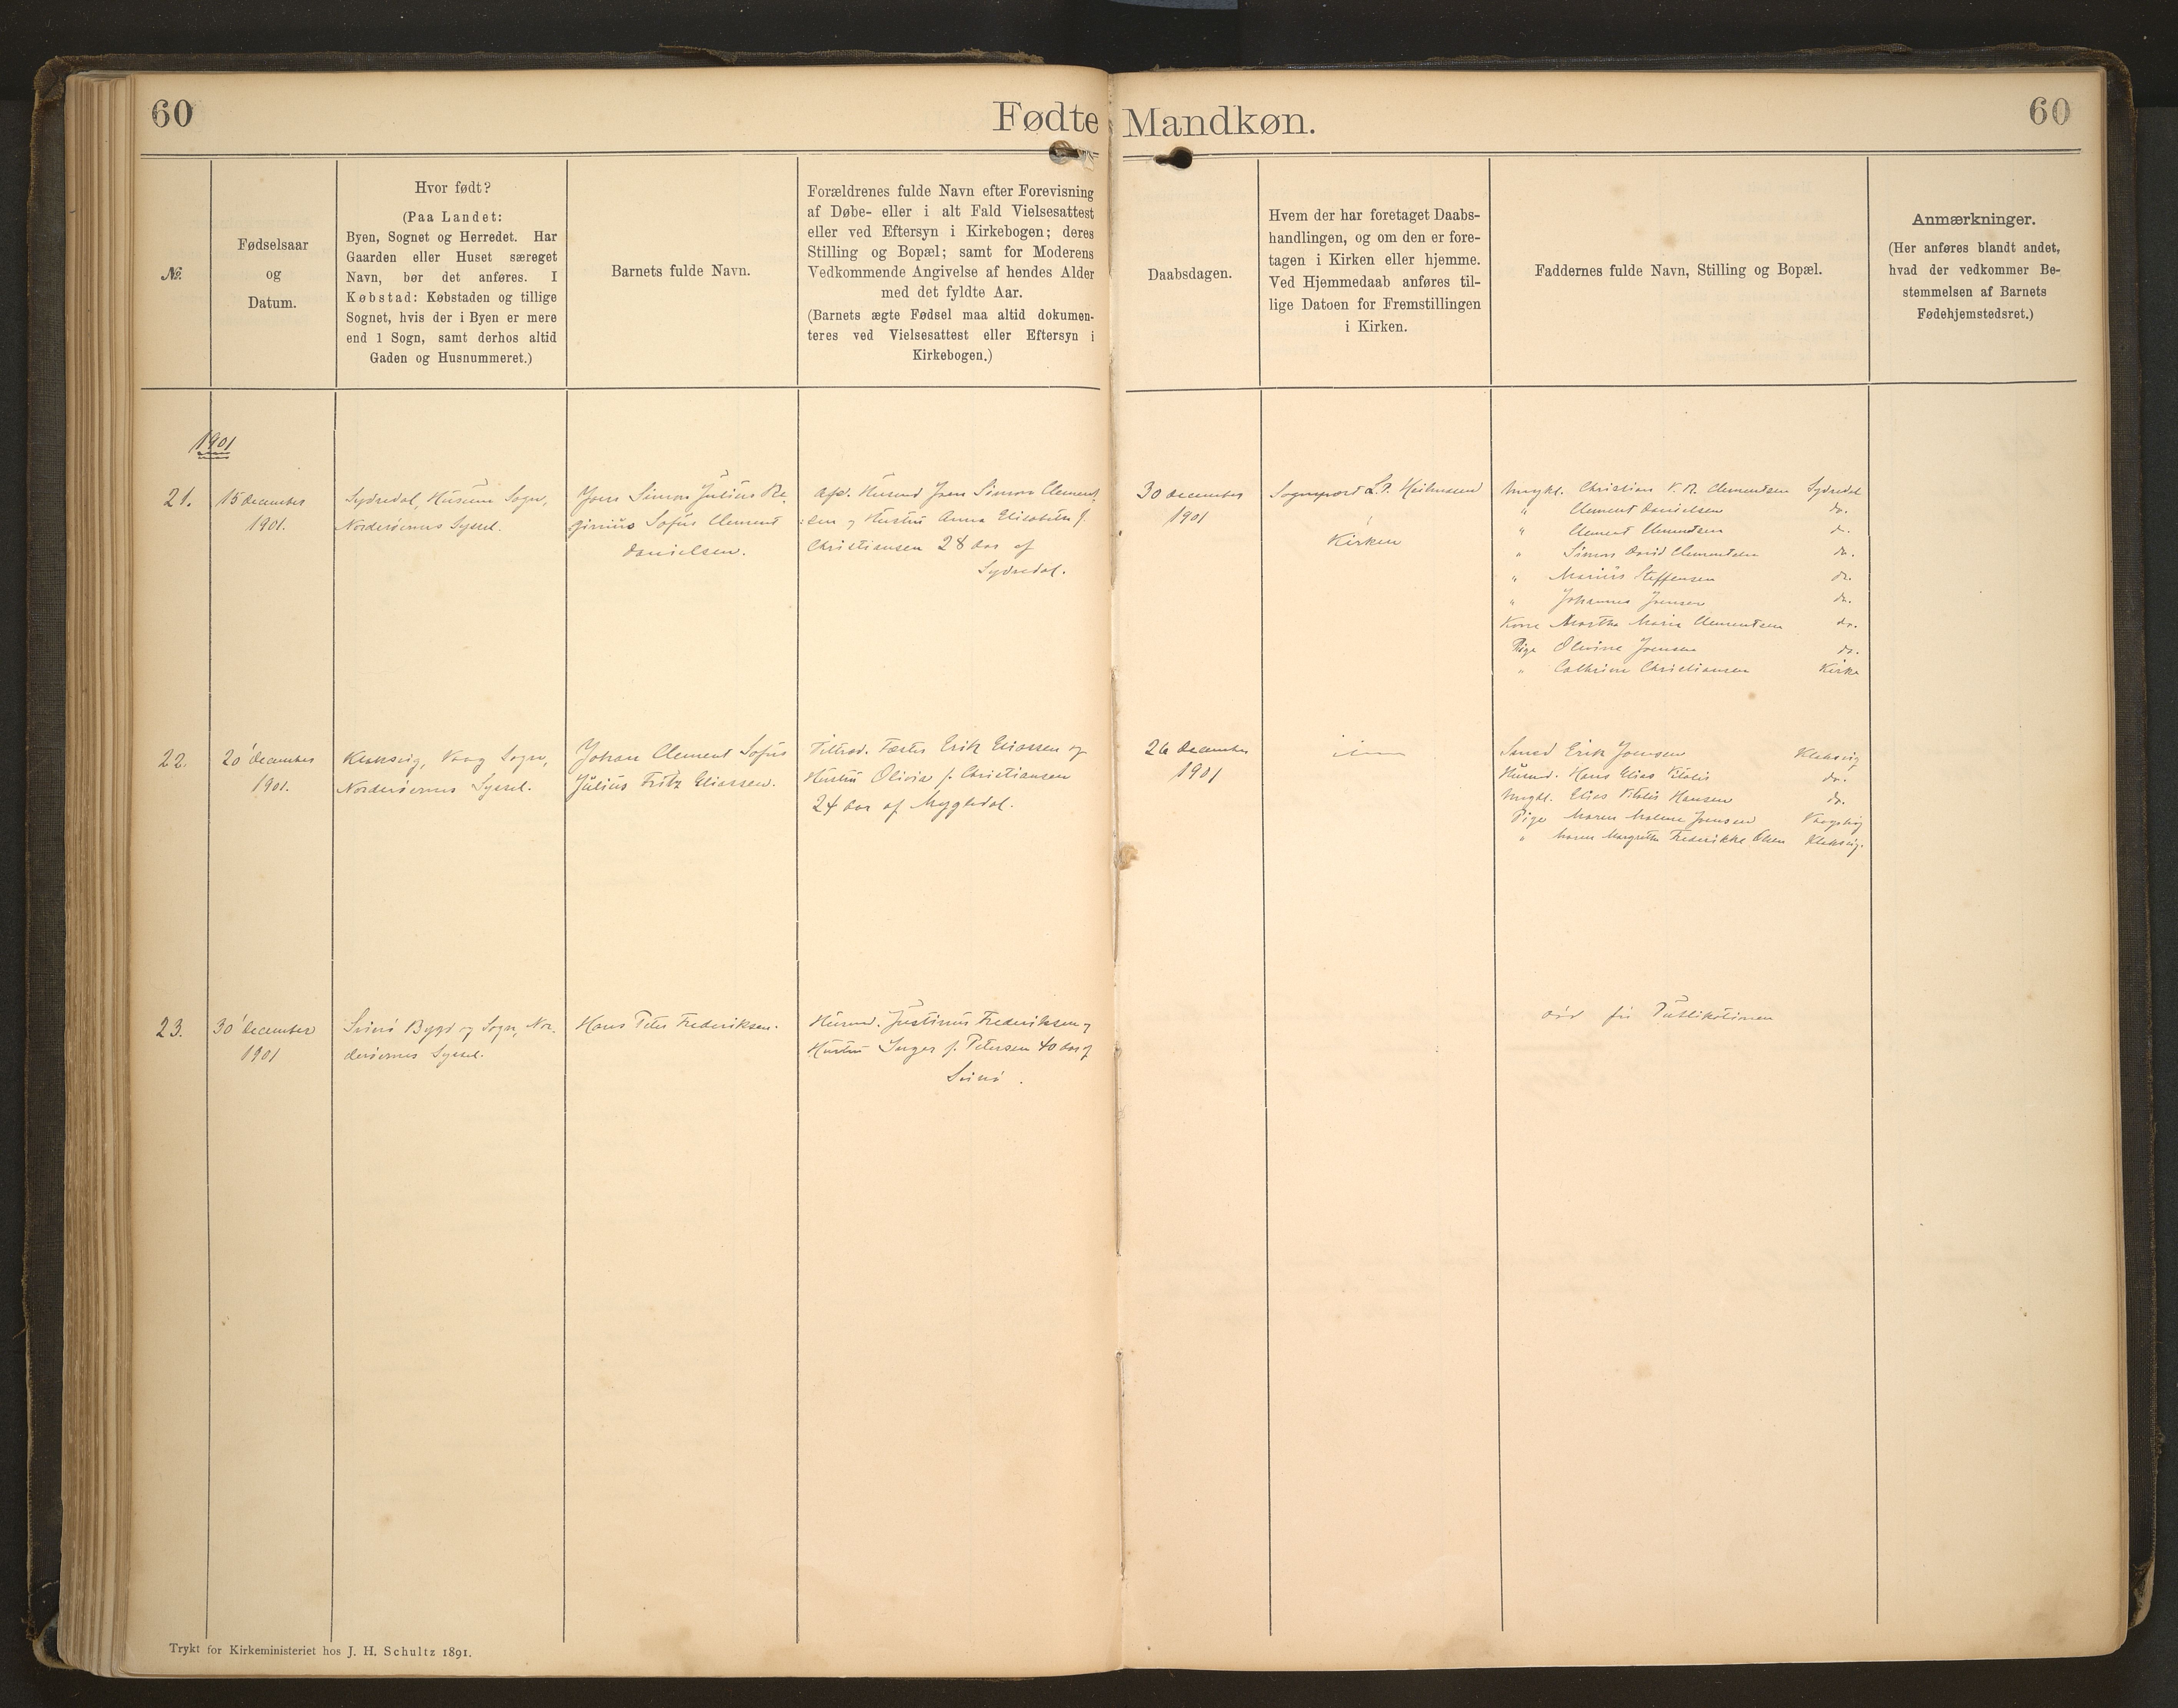 60
Fødte Mandkøn.
60
№.
Fødselsaar
og
Datum.
Hvor født?
(Paa Landet:
Byen, Sognet og Herredet. Har
Gaarden eller Huset særeget
Navn, bør det anføres. I
Købstad: Købstaden og tillige
Sognet, hvis der i Byen er mere
end 1 Sogn, samt derhos altid
Gaden og Husnummeret.)
Barnets fulde Navn.
Forældrenes fulde Navn efter Forevisning
af Døbe- eller i alt Fald Vielsesattest
eller ved Eftersyn i Kirkebogen; deres
Stilling og Bopæl; samt for Moderens
Vedkommende Angivelse af hendes Alder
med det fyldte Aar.
(Barnets ægte Fødsel maa altid dokumen-
teres ved Vielsesattest eller Eftersyn i
Kirkebogen.)
Daabsdagen.
Hvem der har foretaget Daabs-
handlingen, og om den er fore-
tagen i Kirken eller hjemme.
Ved Hjemmedaab anføres til-
lige Datoen for Fremstillingen
i Kirken.
Faddernes fulde Navn, Stilling og Bopæl.
Anmærkninger.
(Her anføres blandt andet,
hvad der vedkommer Be-
stemmelsen af Barnets
Fødehjemstedsret.)
1901
21.
15 december
1901.
Sydredal, Husum Sogn,
Norderøernes Syssel.
Jens Simon Julius Re-
ginius Sofus Clement
Danielsen.
Husmd Jens Simon Clement-
sen og Hustru Anna Elisabeth f.
Christiansen 28 Aar af
Sydredal.
30 december
1901
Sognepræst
i
Kirken
Ungkl. Christian Clementsen Sydredal
" Clement Danielsen do.
" Clement Clementsen do.
" Simon David Clementsen do.
" Marius Steffensen do.
" Johannes Joensen do.
Kone Martha Maria Clementsen do.
Pige Olivine Joensen do.
" Cathrine Christiansen Kirke
22.
20 december
1901.
Klaksvig, Vaag Sogn,
Norderøernes Syssel.
Johan Clement Sofus
Julius Fritz Eliassen.
Fæster Erik Eliassen og
Hustru Olivia f. Christiansen
24 Aar af Mygledal.
26 december
1901
Smed Erik Joensen Klaksvig
Husmd. Hans Elias Vitalis do.
Ungkl. Elias Vitalis Hansen do.
Pige Maren Malene Joensen
" Maren Margrethe Frederikke Olsen Klaksvig.
23.
30 december
1901
Svinø Bygd og Sogn, Nor-
derøernes Syssel.
Hans Peter Frederiksen.
Husmd. Justinus Frederiksen og
Hustru Inger f. Petersen 40 Aar af
Svinø.
Trykt for Kirkeministeriet hos J. H. Schultz 1891.